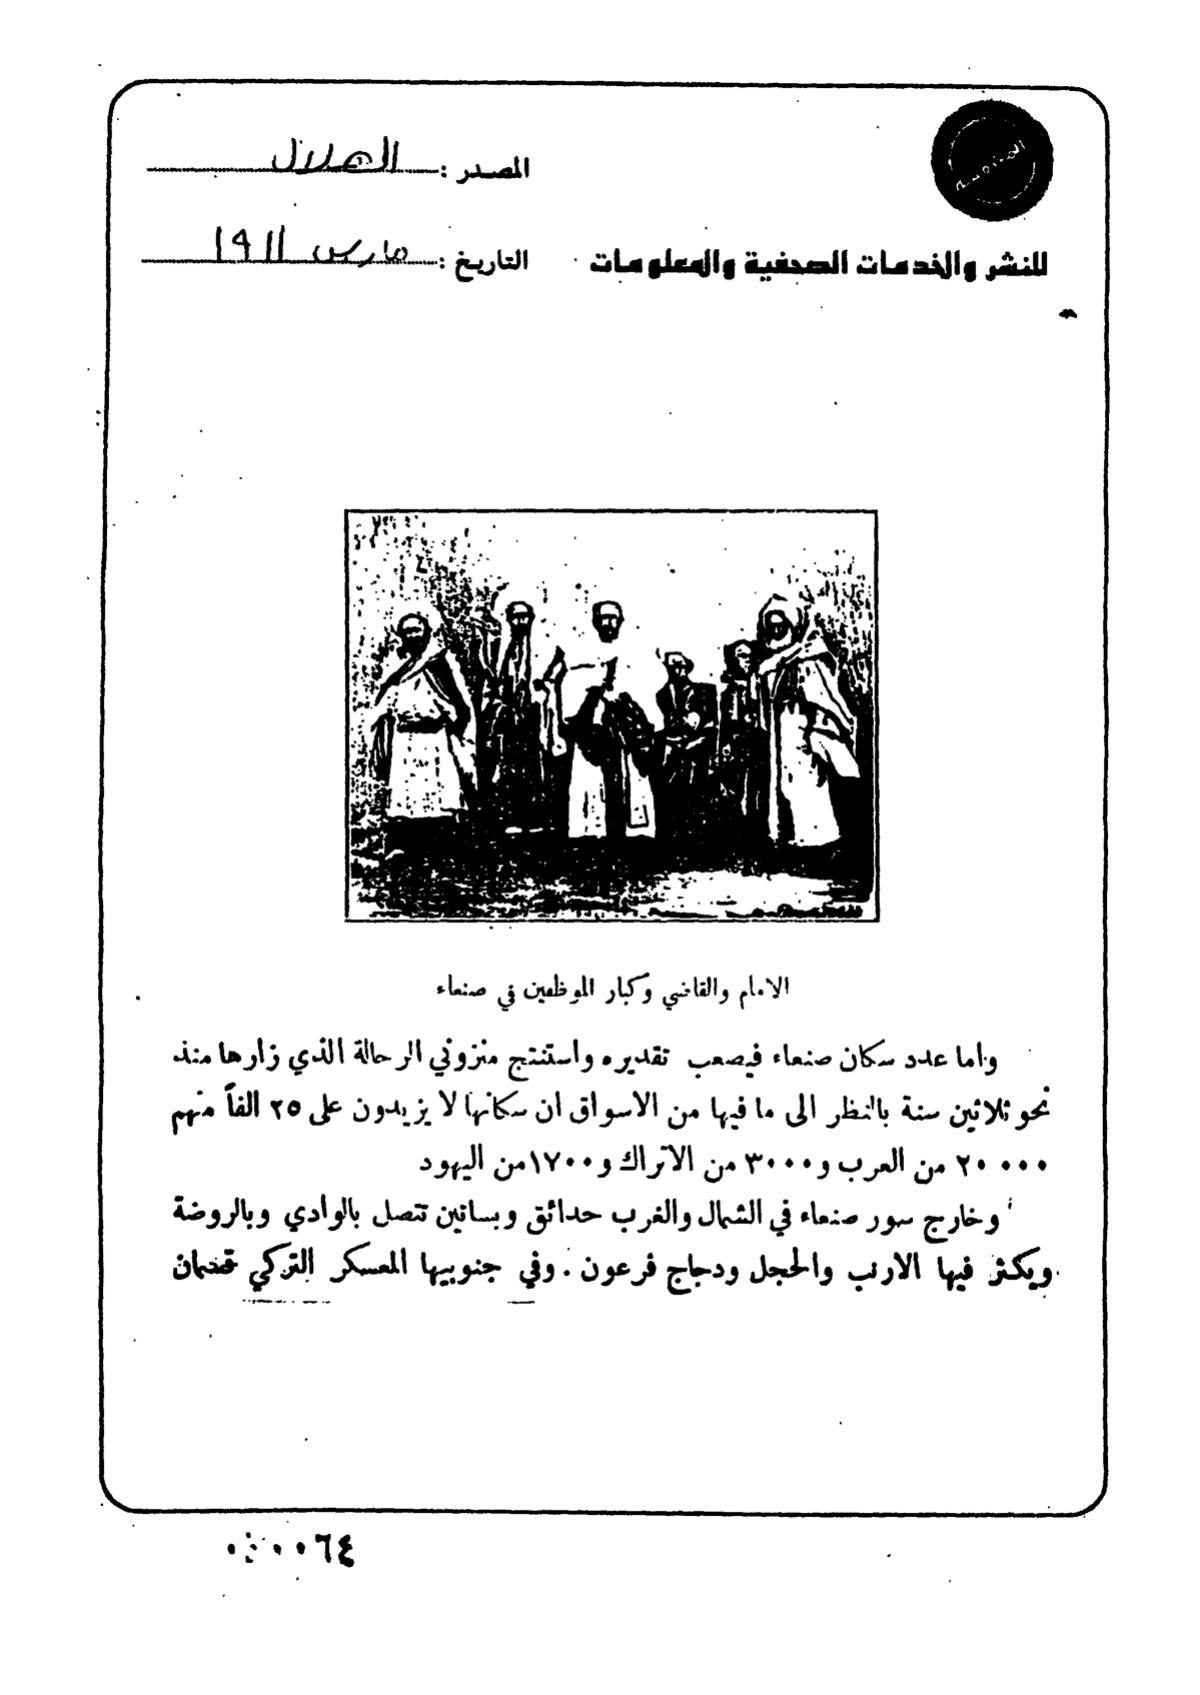 المصدر : الهلال
للنشر والخدمات الصحفية والمعلومات
التاريخ : مارس ١٩١١
الامام والقاضي وكبار الموظفين في صنعاء
واما عدد سكان صنعاء فيصعب تقديره واستنتج منزوني الرحالة الذي زارها منذ
نحو ثلاثين سنة بالنظر الى ما فيها من الاسواق ان سكانها لا يزيدون على ٢٥ الفاً منهم
٢٠٠٠٠ من العرب و٣٠٠٠ من الاتراك و١٧٠٠ من اليهود
وخارج سور صنعاء في الشمال والغرب حدائق وبساتين تتصل بالوادي وبالروضة
ويكثر فيها الارنب والحجل ودجاج فرعون . وفي جنوبيها المعسكر التركي